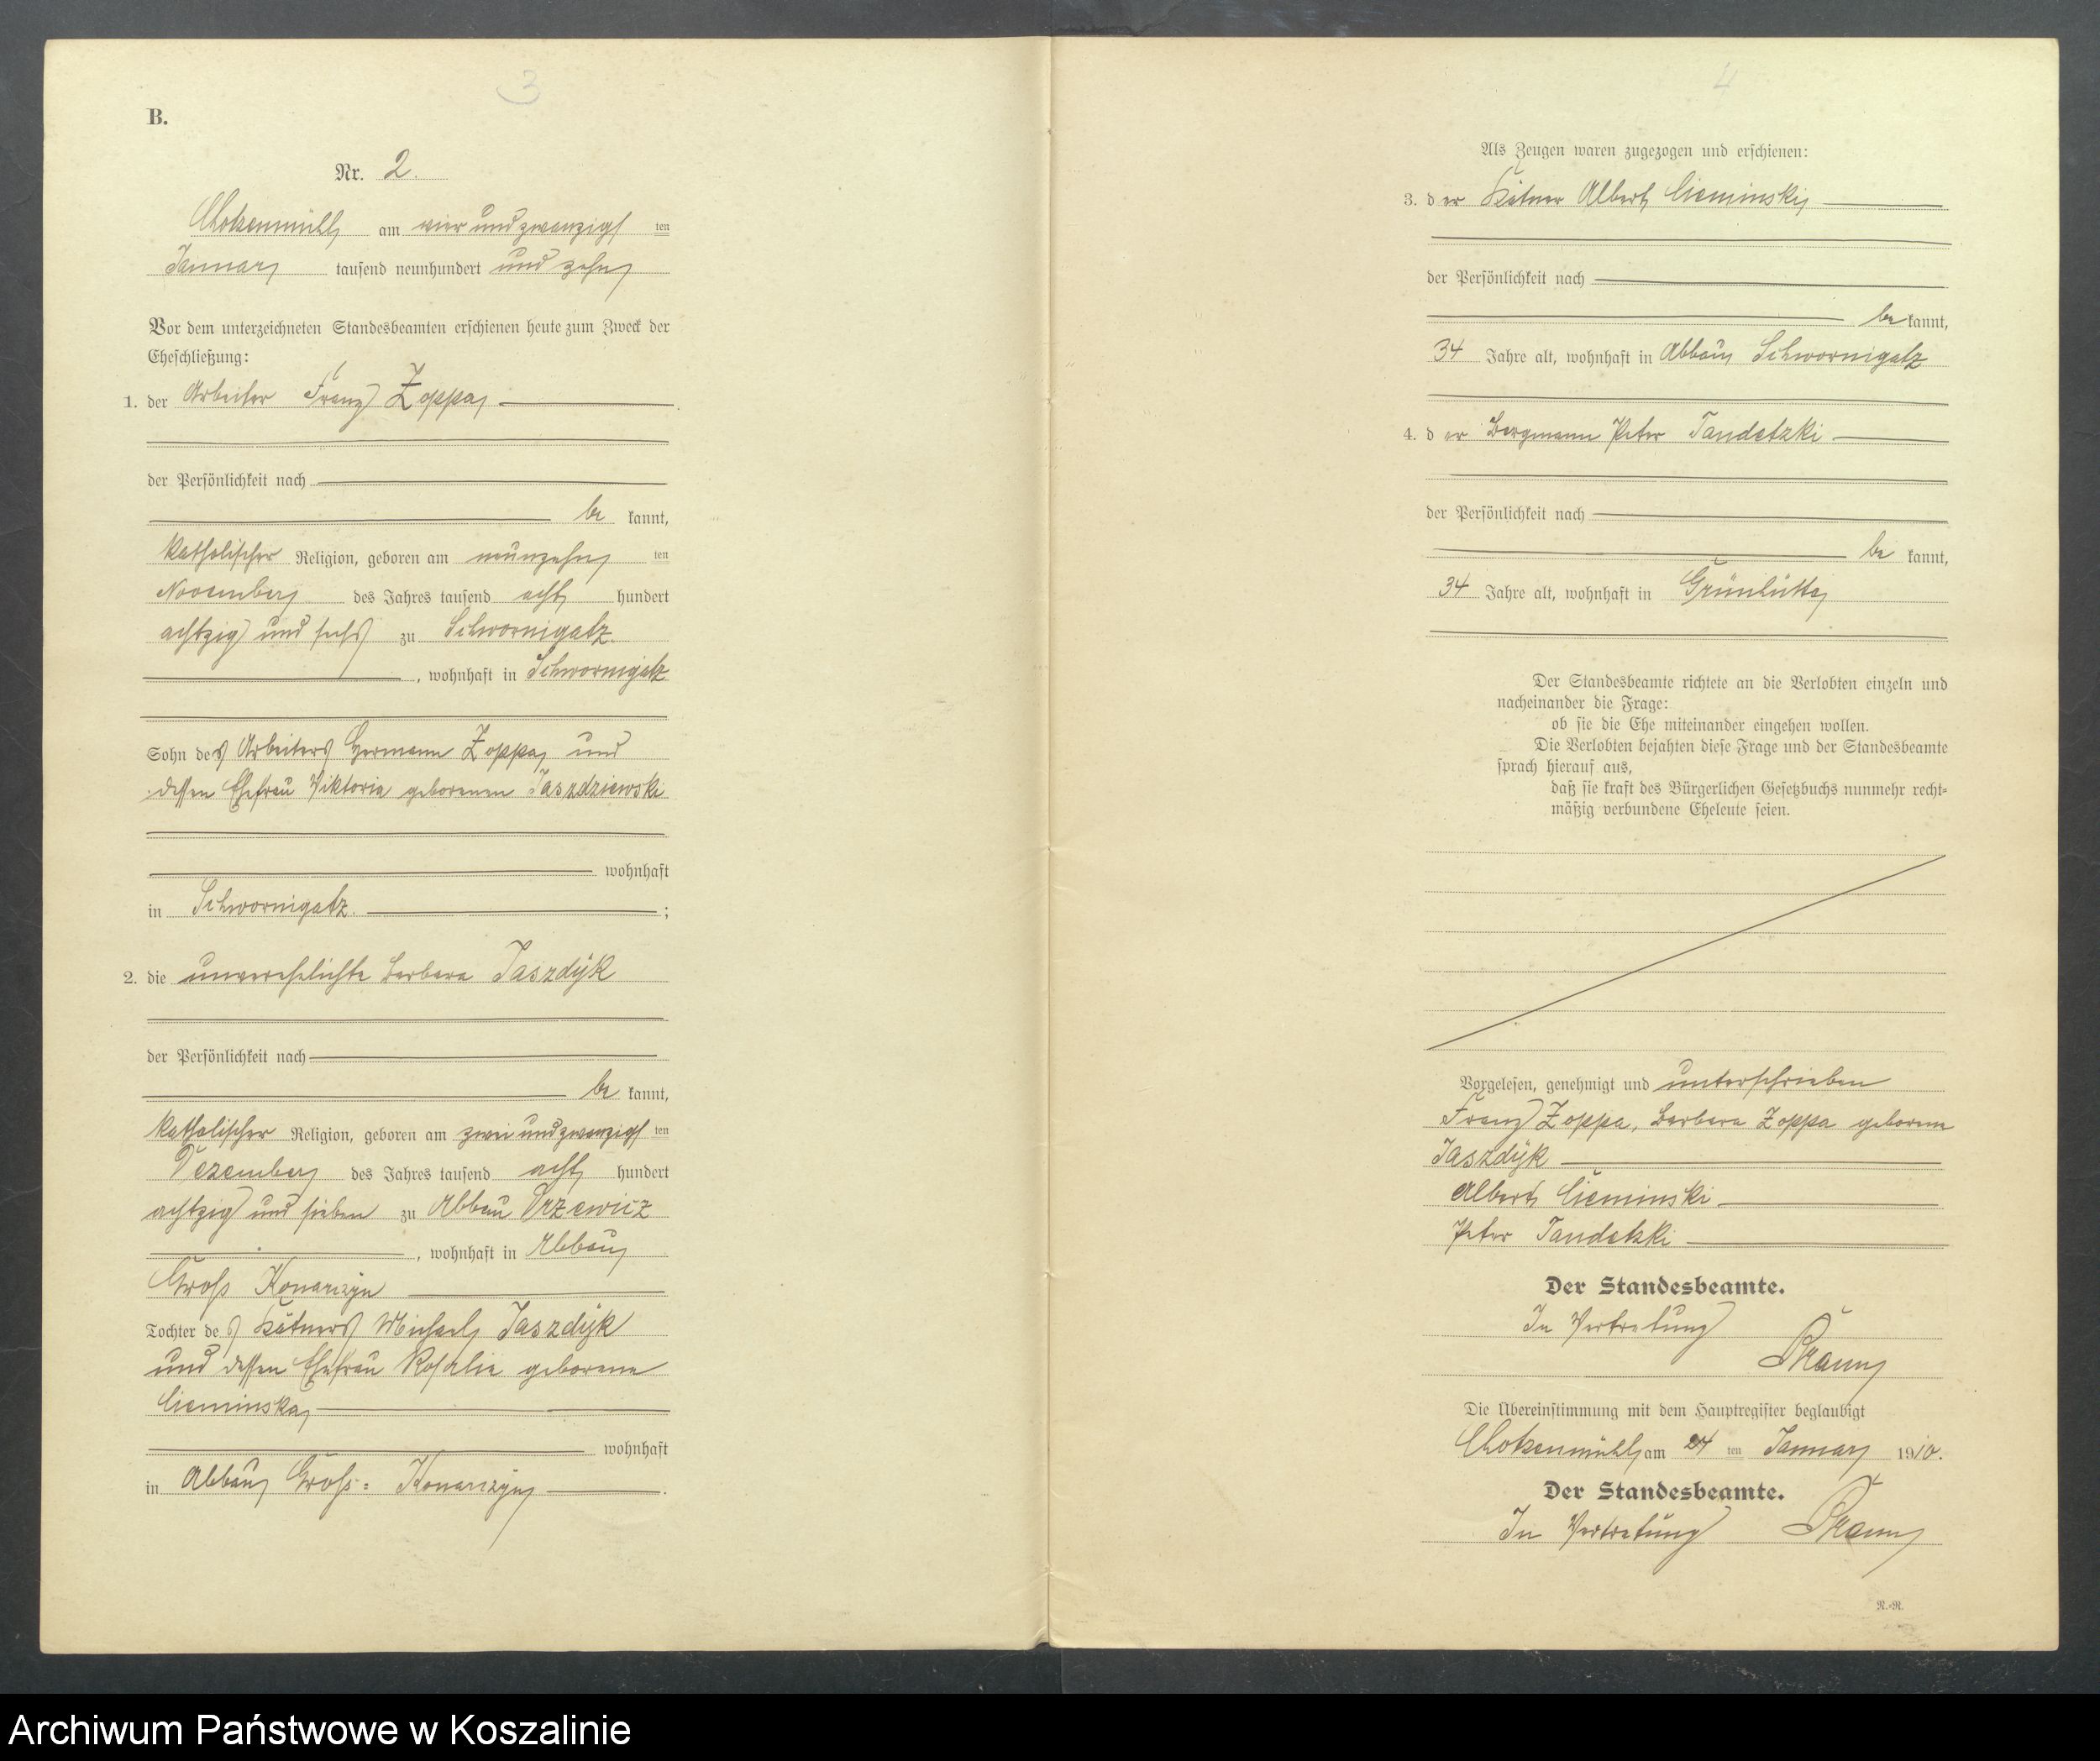 3
B.
Nr. 2.
Chotzenmühl, am vierundzwanzigsten
Januar tausend neunhundert und zehn
Vor dem unterzeichneten Standesbeamten erschienen heute zum Zweck der
Eheschließung:
1. der Arbeiter Franz Zoppa,
der Persönlichkeit nach
bekannt,
katholischer Religion, geboren am neunzehnten
November des Jahres tausend acht hundert
achtzig und sechs zu Schwornigatz
, wohnhaft in Schwornigatz
Sohn des Arbeiters Hermann Zoppa, und
dessen Ehefrau Viktoria geborenen Jaszdziewski
wohnhaft
in Schwornigatz. ;
2. die unverehelichte Barbara Jaszdyk
der Persönlichkeit nach
bekannt,
katholischer Religion, geboren am zweiundzwanzigsten
Dezember des Jahres tausend acht hundert
achtzig und sieben zu Abbau
, wohnhaft in Abbau
Groß Konarczyn
Tochter des Kätners Michael Jaszdyk
und dessen Ehefrau Rosalie geborene
Cieminska,
wohnhaft
in Abbau Groß= Konarczyn .
4
Als Zeugen waren zugezogen und erschienen:
3. der Kätner Albert Cieminski,
der Persönlichkeit nach
bekannt,
34 Jahre alt, wohnhaft in Abbau Schwornigatz
4. der Bergmann Peter Tandetzki
der Persönlichkeit nach
bekannt,
34 Jahre alt, wohnhaft in Grünhütte
Der Standesbeamte richtete an die Verlobten einzeln und
nacheinander die Frage:
ob sie die Ehe miteinander eingehen wollen.
Die Verlobten bejahten diese Frage und der Standesbeamte
sprach hierauf aus,
daß sie kraft des Bürgerlichen Gesetzbuchs nunmehr recht=
mäßig verbundene Eheleute seien.
Vorgelesen, genehmigt und unterschrieben
Franz Zoppa, Barbara Zoppa geborene
Jaszdyk
Albert Cieminski
Peter Tandetzki
Der Standesbeamte.
In Vertretung
Die Übereinstimmung mit dem Hauptregister beglaubigt
Chotzenmühl, am 24 ten Januar 1910.
Der Standesbeamte.
In Vertretung
R.-R.
Archiwum Państwowe w Koszalinie